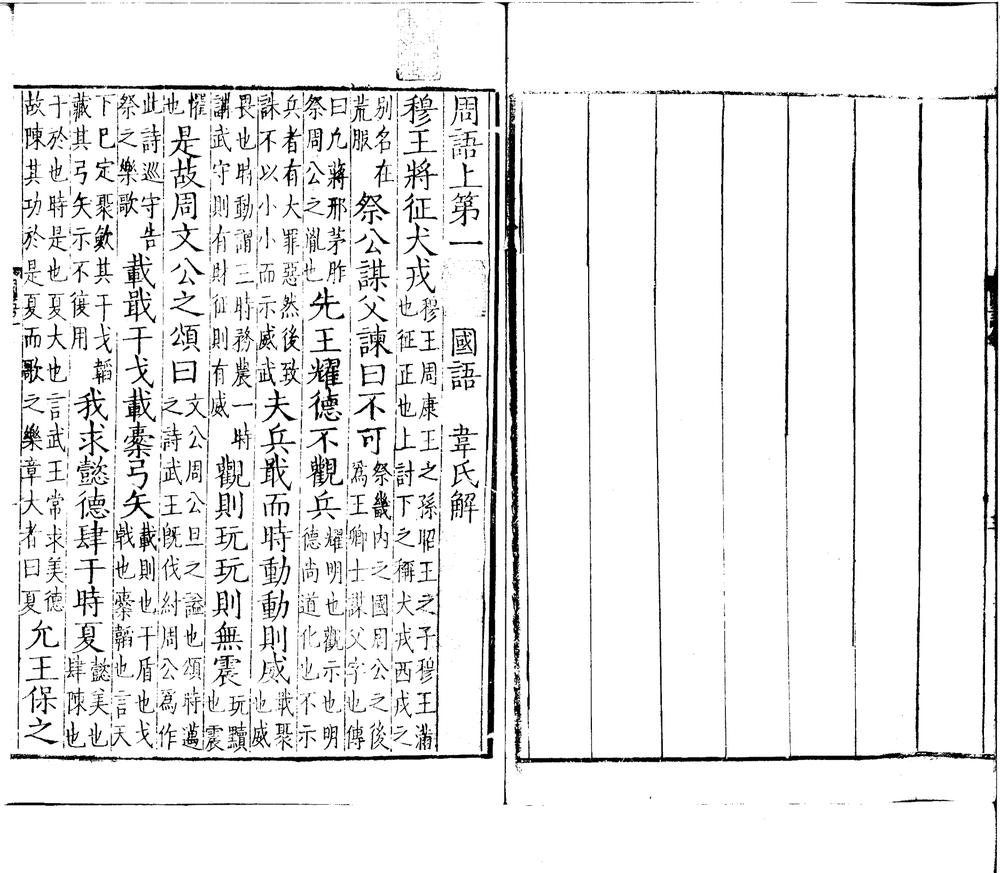 周語上第一 國語 韋氏解
穆王將征犬戎穆王周康王之孫昭王之子穆王滿也征正也上討下之稱犬戎西戎之
別名在荒服祭公謀父諫曰不可祭畿內之國周公之後為王卿士謀父字也傳
曰凡蔣邢茅胙祭周公之胤也先王耀德不觀兵耀明也觀示也明德尚道化也不示
兵者有大罪惡然後致誅不以小小而示威武夫兵戢而時動動則威戢聚也威
畏也時動謂三時務農一時講武守則有財征則有威觀則玩玩則無震玩黷也震
懼也是故周文公之頌曰文公周公旦之謚也頌時邁之詩武王既伐紂周公爲作
此詩巡守告祭之樂歌載戢干戈載櫜弓矢載則也干盾也戈戟也櫜韜也言天
下已定聚斂其干戈韜藏其弓矢示不復用我求懿德肆于時夏懿美也肆陳也
于於也時是也夏大也言武王常求美德故陳其功於是夏而歌之樂章大者曰夏允王保之